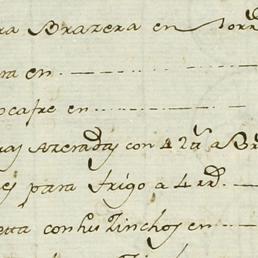 ra Brazera en
ra en
ocafre en
Azeradas con 42 a
es para trigo a 4 rr.
etta con sus Zinchos en